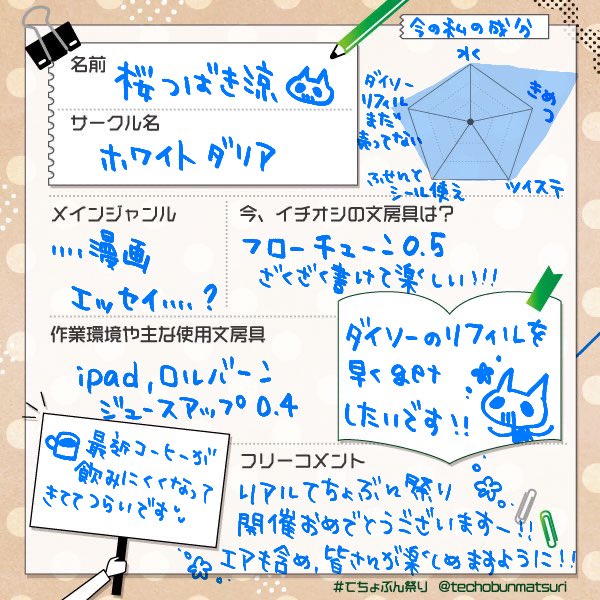 今の私の成分
水く
きめつ
ツイステ
ふせんで
シール使え
ダイソー
リフィル
まだ
売ってない
名前
桜つばき涼
サークル名
ホワイトダリア
メインジャンル
….漫画
エッセイ….?
今、イチオシの文房具は?
フローチューン0.5
ざくざく書けて楽しいい!!!
作業環境や主な使用文房具
ipad,ロルバーン
ジュースアップ0.4
ダイソーのリフィルを
早くget
したいです!!
最近コーヒーが
飲みにくくなって
きててつらいです
フリーコメント
リアルてちょぶん祭り
開催おめでとうございますー!!
エアも含め,皆さんが楽しめますように!!
#てちょぶん祭り @techobunmatsuri